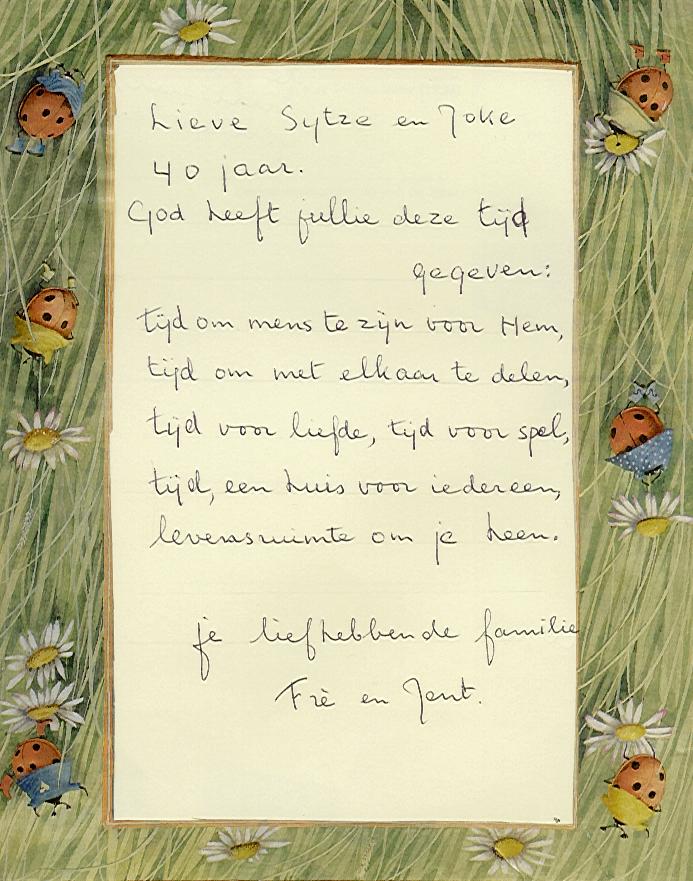 Lieve Sytze en Joke
40 jaar.
God heeft jullie deze tijd
gegeven:
tijd om mens te zijn voor Hem,
tijd om met elkaar te delen,
tijd voor liefde, tijd voor spel,
tijd, een huis voor iedereen,
levensruimte om je heen.
je liefhebbende familie
Frè en Jent.